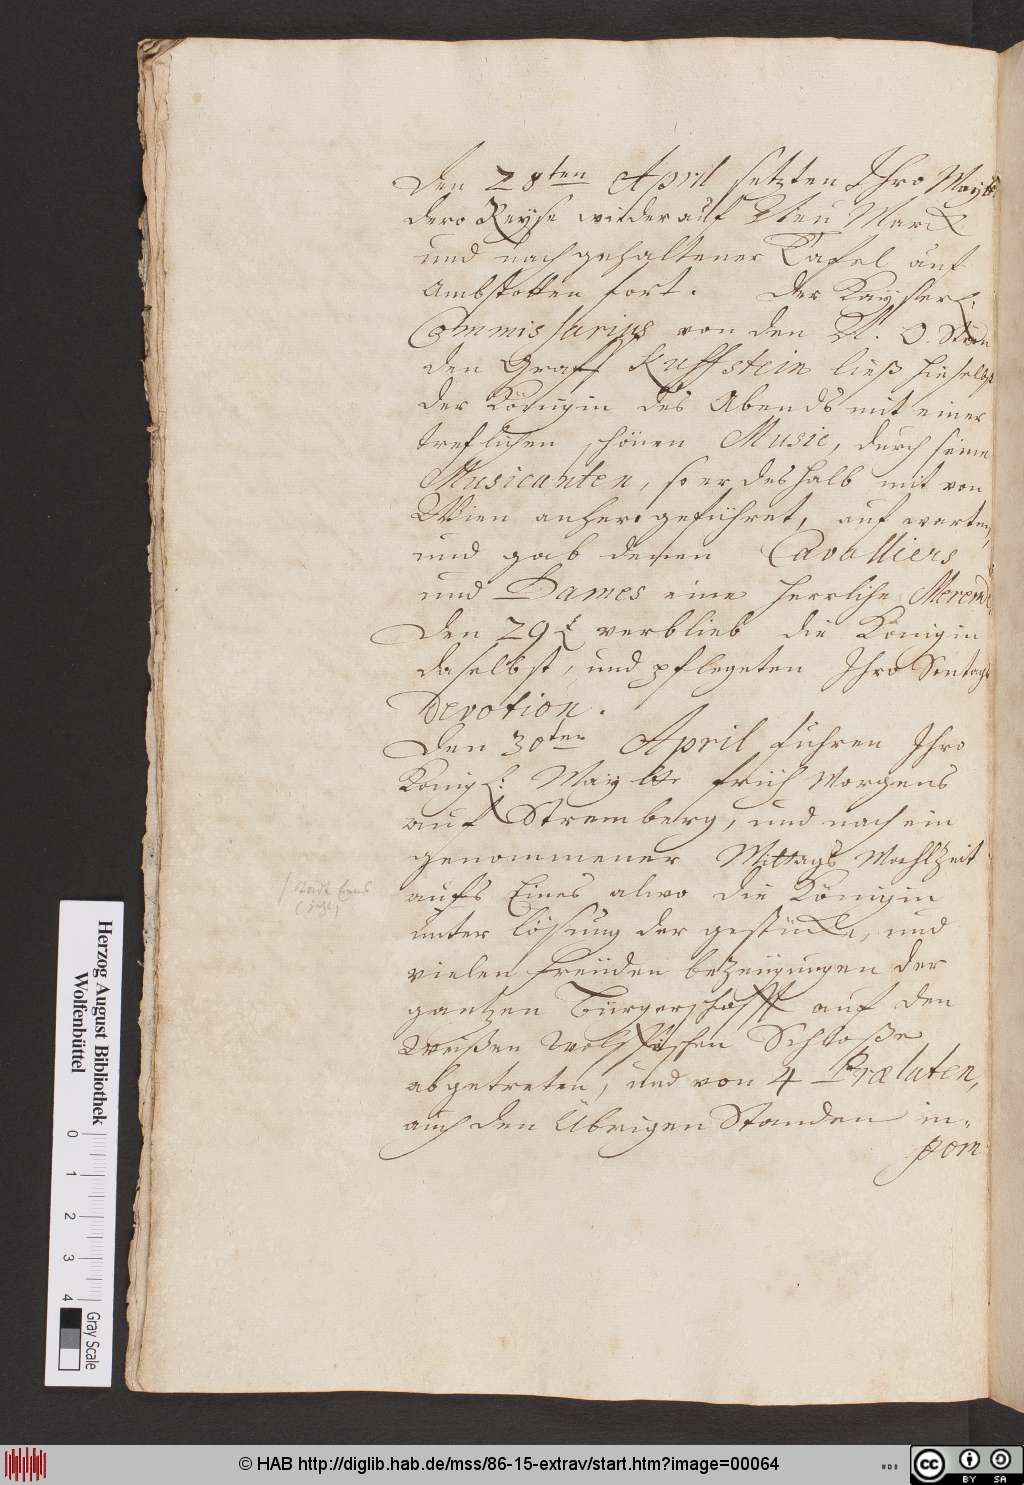 Den 28ten April setzten Ihro Mayttt.
dero Reyse wieder auf Neu Marck
und nach gehaltener Tafel auf
Ambstetten fort. Der Kayserl:
Commissarius von den N. O. Stän
den Graff Kuffstein ließ hieselbst
der Königin des Abends mit einer
treflichen schönen Music, durch seine
Musicanten, so er deshalb mit von
Wien anhero geführet, auf warten,
und gab denen Cavalliers
und Dames eine herrliche Merend
Den 29t verblieb die Königin
daselbst, und pflegeten Ihro Sontags
Devotion.
Den 30ten April fuhren Ihro
Königl: Maytte früh Morgens
auf Stremberg, und nach ein
genommener Mittags Mahlzeit
aufs Eines alwo die Königin
unter lösung der gestücke, und
vielen freüden bezeügungen der
gantzen Bürgerschafft auf den
Weißen Schloße
abgetreten, und von 4 Prælaten,
auch den Übrigen Standen in-
pom
Stadt Enns
Herzog August Bibliothek
Wolfenbüttel
0 1 2 3 4
Gray Scale
© HAB http://diglib.hab.de/mss/86-15-extrav/start.htm?image=00064
cc BY SA